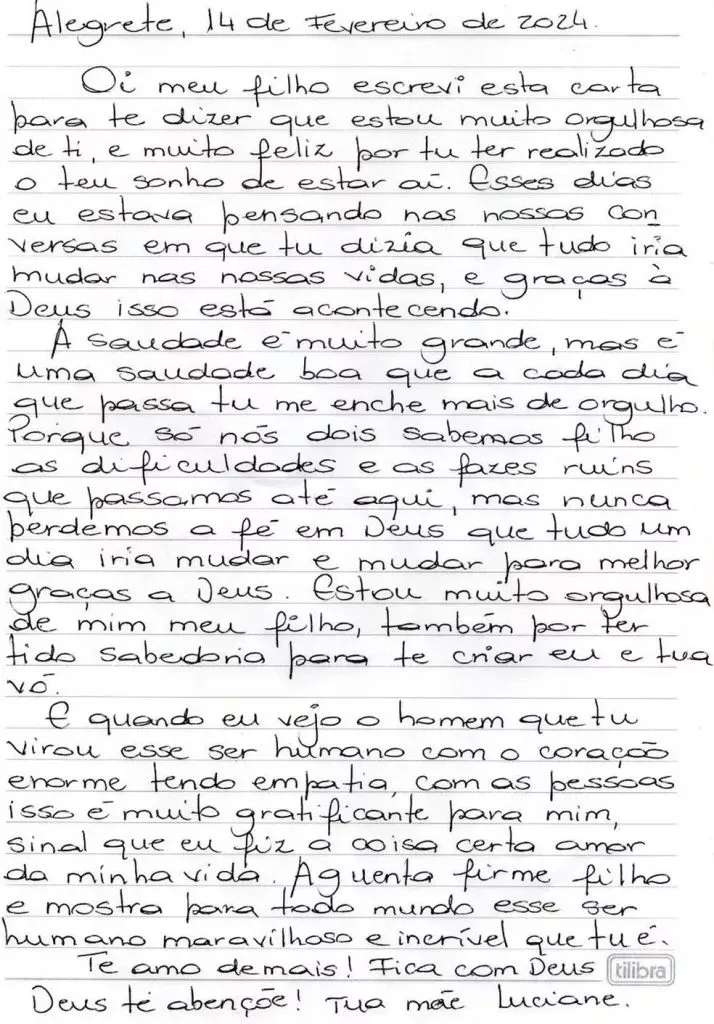 Alegrete, 14 de Fevereiro de 2024.
Oi meu filho escrevi esta carta
para te dizer que estou muito orgulhosa
de ti, e muito feliz por tu ter realizado
o teu sonho de estar aí. Esses dias
eu estava pensando nas nossas con
versas em que tu dizia que tudo iria
mudar nas nossas vidas, e graças à
Deus isso está acontecendo.
A saudade é muito grande, mas é
uma saudade boa que a cada dia
que passa tu me enche mais de orgulho.
Porque só nós dois sabemos filho
as dificuldades e as fazes ruins
que passamos até aqui, mas nunca
perdemos a fé em Deus que tudo um
dia iria mudar e mudar para melhor
graças a Deus. Estou muito orgulhosa
de mim meu filho, também por ter
tido sabedoria para te criar eu e tua
vó.
E quando eu vejo o homem que tu
virou esse ser humano com o coração
enorme tendo empatia, com as pessoas
isso é muito gratificante para mim,
sinal que eu fiz a coisa certa amor
da minha vida. Aguenta firme filho
e mostra para todo mundo esse ser
humano maravilhoso e incrível que tu é.
Te amo demais! Fica com Deus tilibra
Deus te abençõe! Tua mãe Luciane.